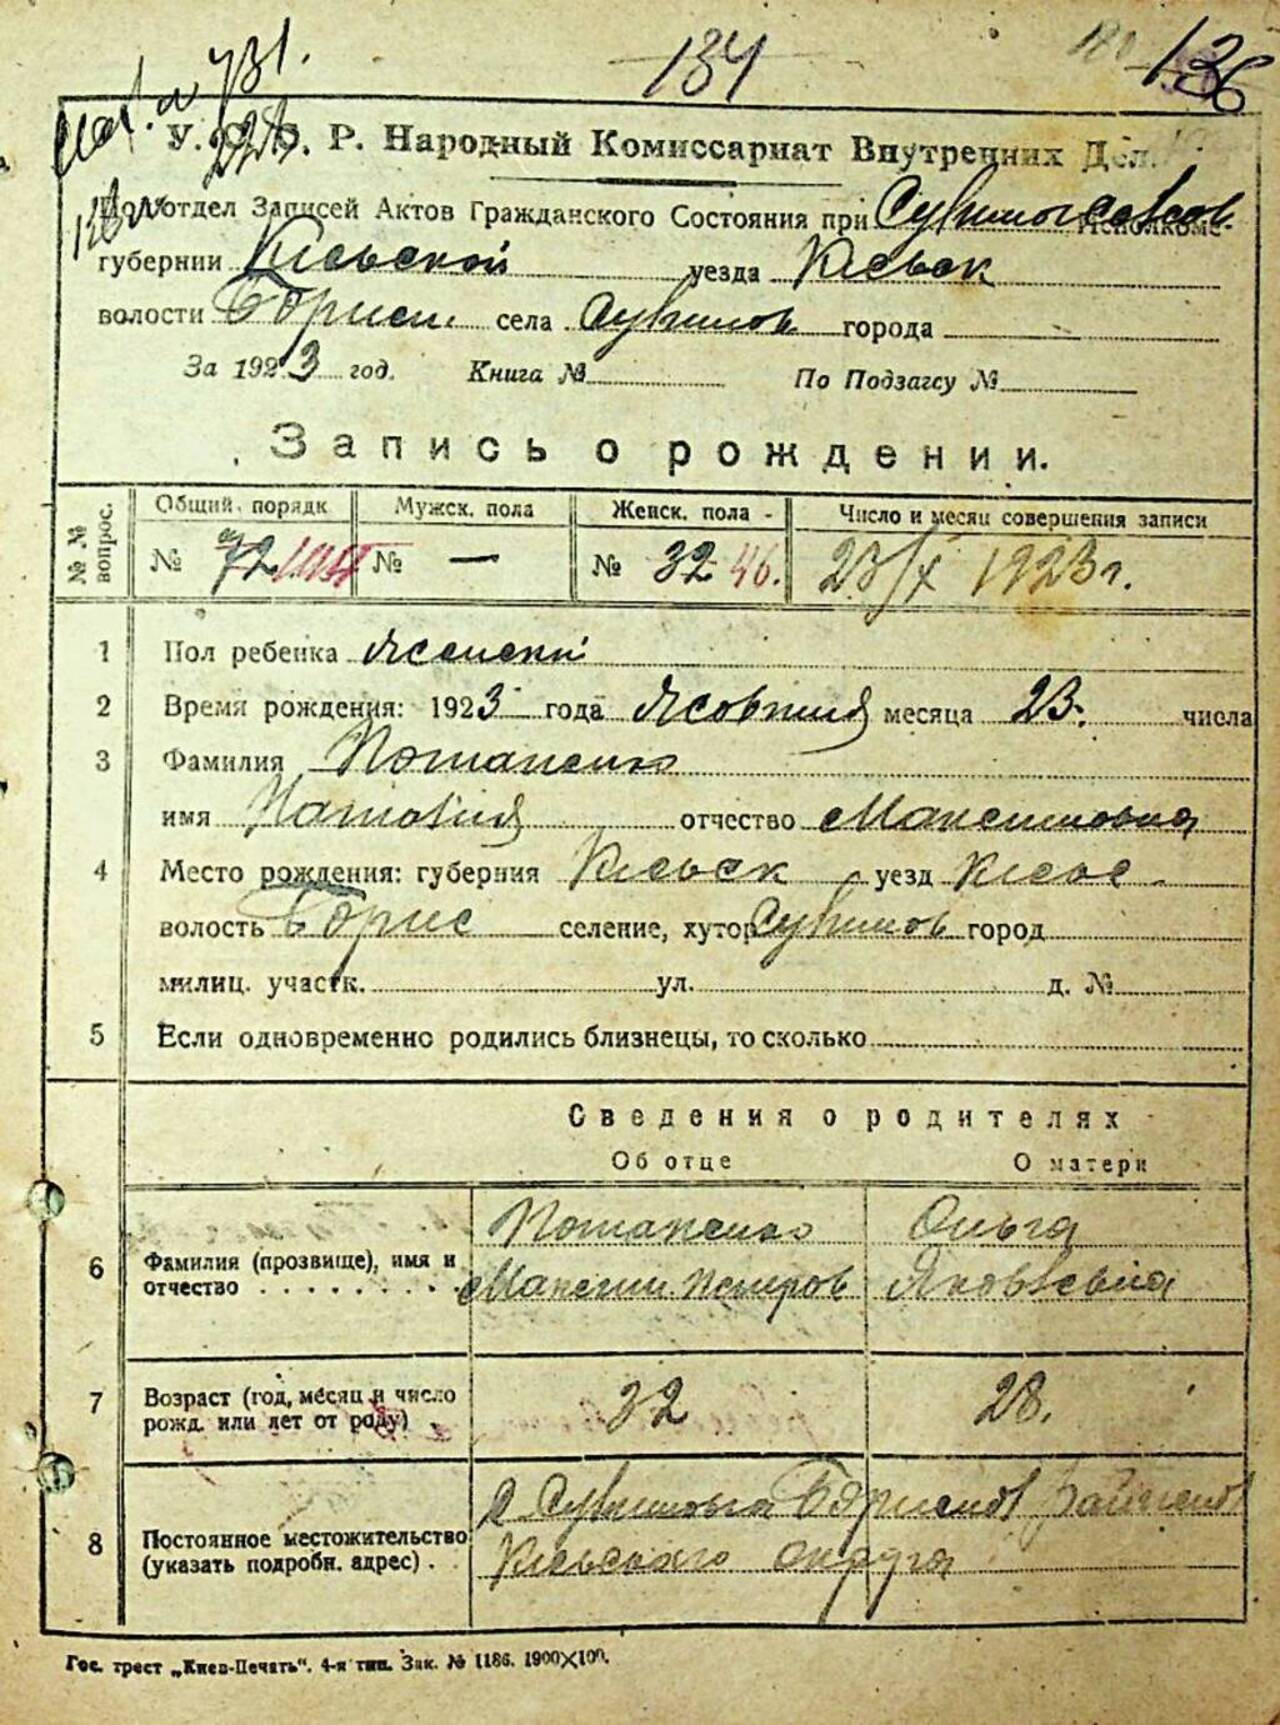 134
136
У. С. С. Р. Народный Комиссариат Внутренних Дел.
Подотдел Записей Актов Гражданского Состояния при Исполкоме
губернии Київської уезда Київськ
волости Борисп. села села города
За 1923 год. Книга № По Подзагсу №
Запись о рождении.
№ № вопрос. Общий порядк Мужск. пола Женск. пола Число и месяц совершения записи
№ 72 № — № 32 46. 23/X 1923 г.
1 Пол ребенка Женский
2 Время рождения: 1923 года Жовтня месяца 23. числа
3 Фамилия Потапенко
имя Наталия отчество Максимовна
4 Место рождения: губерния Київськ уезд Київс
волость Борис селение, хутор город
милиц. участк. ул. д. №
5 Если одновременно родились близнецы, то сколько
Сведения о родителях
Об отце О матери
6 Фамилия (прозвище), имя и отчество Потапенко Ольга
Максим Петров Яковлевна
7 Возраст (год, месяц и число рожд. или лет от роду) 32 28.
8 Постоянное местожительство (указать подробн. адрес)
Київського округа
Гос. трест „Киев-Печать“. 4-я тип. Зак. № 1186. 1900×100.